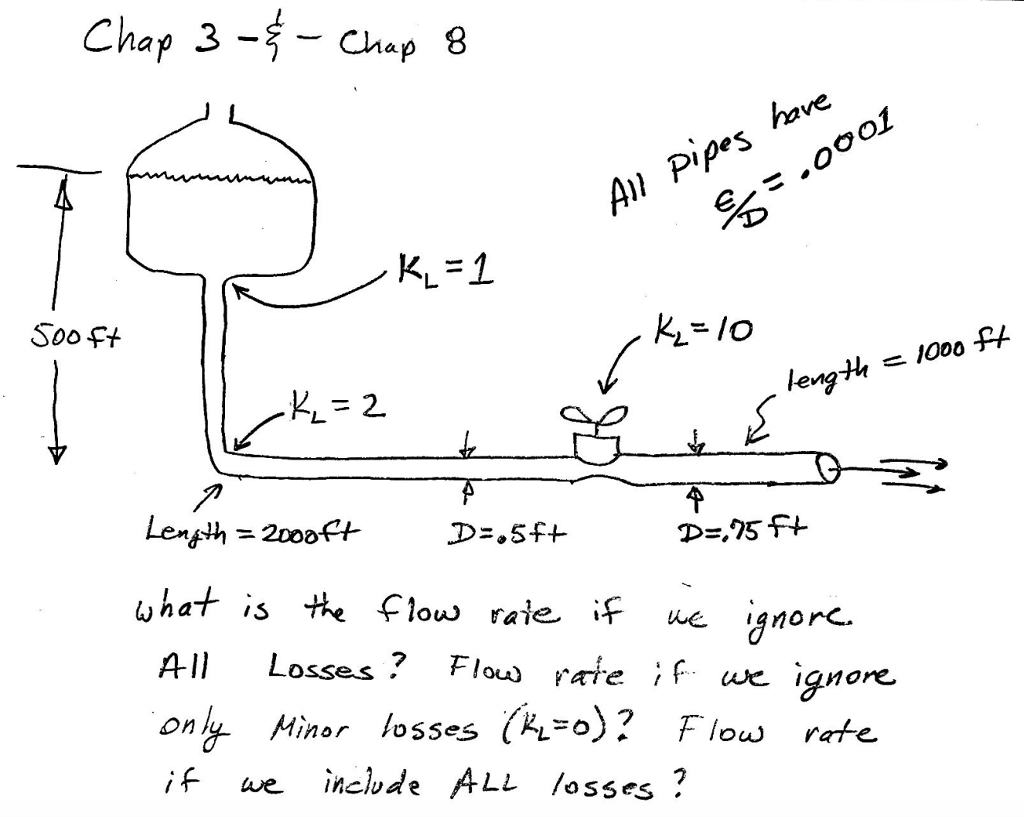 Chap 3 - & - Chap 8
All pipes have
ϵ/D = .0001
K_L = 1
500 ft
K_L = 10
length = 1000 ft
K_L = 2
Length = 2000ft
D=.5ft
D=.75 ft
what is the flow rate if we ignore
All Losses? Flow rate if we ignore
only Minor losses (K_L=0)? Flow rate
if we include ALL losses?